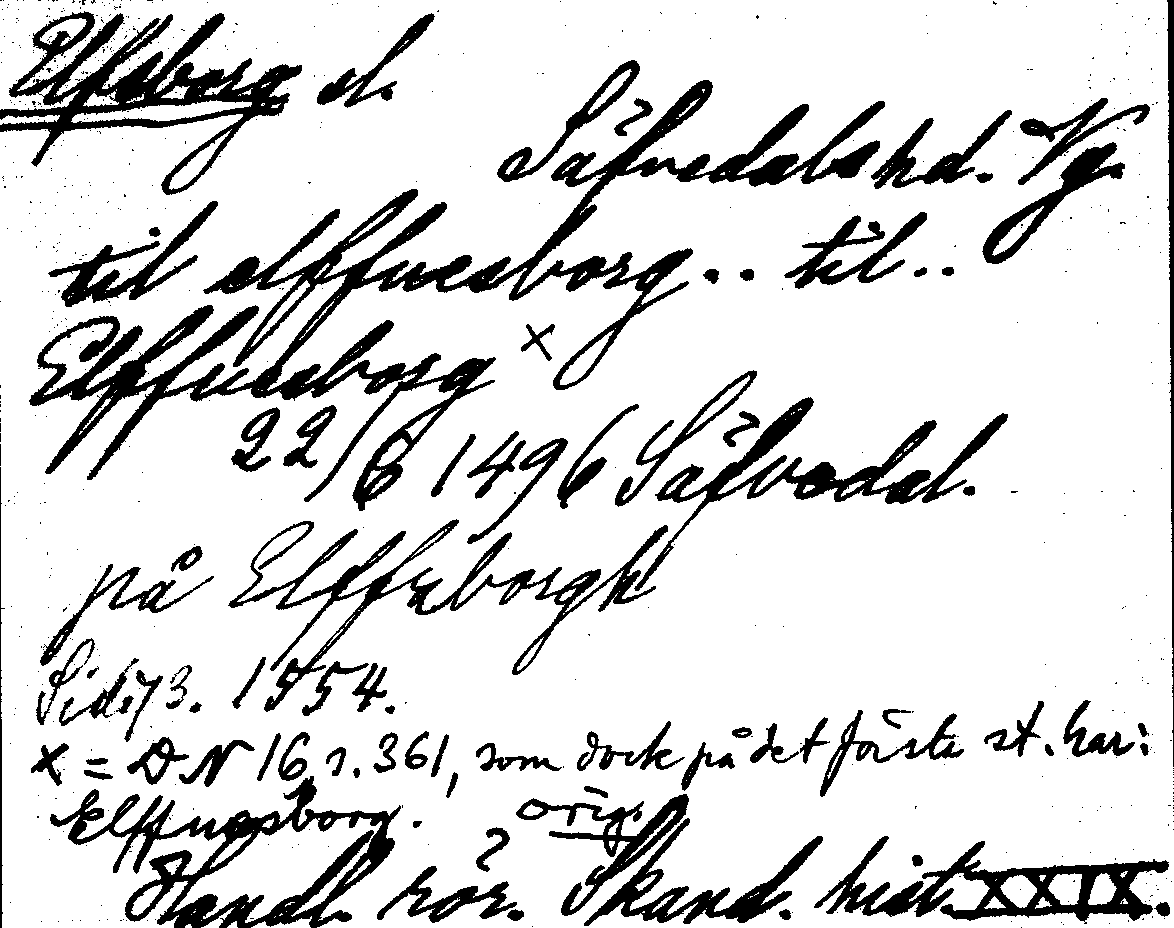 Elfsborg sl.
Säfvedals hd. Vg.
til elffuesborg .. til ..
Elffuesborg ×
22/6 1496 Säfvedal.
på Elffzborgh
Sid. 73. 1554.
× = DN 16 s. 361, som dock på det förste st. har:
Elffuesborg. orig.
Handl. rör. Skand. hist. XXIX.